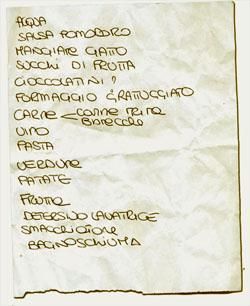 ACQUA
SALSA POMODORO
MANGIARE GATTO
SUCCHI DI FRUTTA
CIOCCOLATINI?
FORMAGGIO GRATTUGGIATO
CARNE < CARNE TRITA
BISTECCHE
VINO
PASTA
VERDURE
PATATE
FRUTTA
DETERSIVO LAVATRICE
SMACCHIATORE
BAGNOSCHIUMA